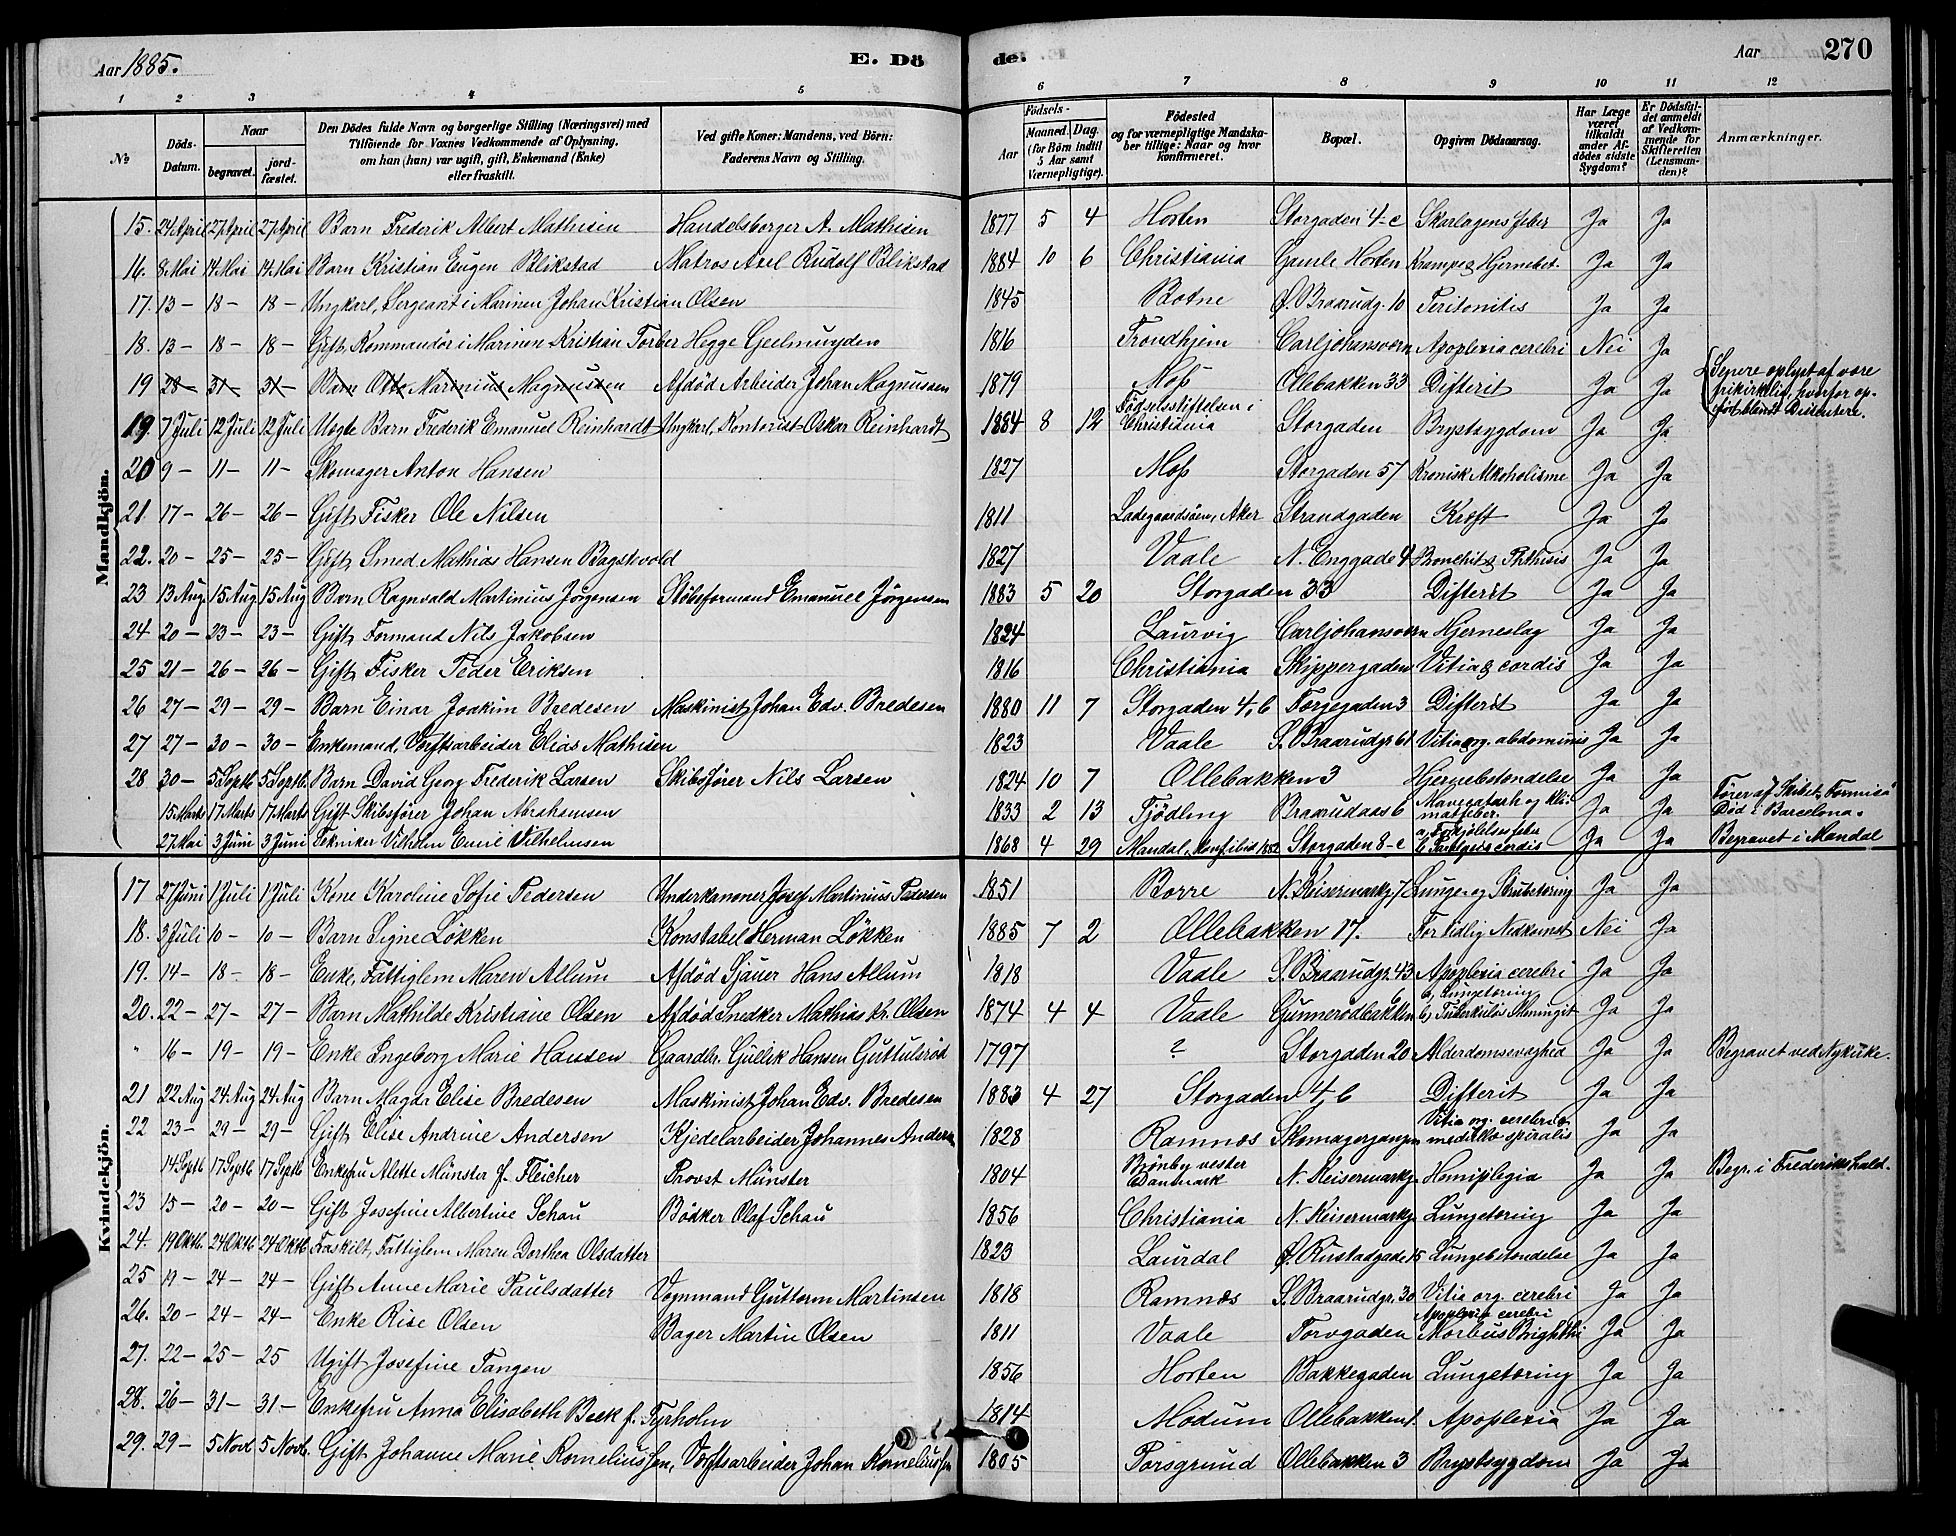 Aar 1885. E. Dö de. Aar 270
1 2 3 4 5 6 7 8 9 10 11 12
№ Döds-Datum. Naar begravet. jord-fæstet. Den Dödes fulde Navn og borgerlige Stilling (Næringsvei) med Tilföiende for Voxnes Vedkommende af Oplysning, om han (hun) var ugift, gift, Enkemand (Enke) eller fraskilt. Ved gifte Koner: Mandens, ved Börn: Faderens Navn og Stilling. Födsels- Aar Maaned. Dag. (for Börn indtil 5 Aar samt Værnepligtige). Födested og for værnepligtige Mandskaber tillige: Naar og hvor konfirmeret. Bopæl. Opgiven Dödsaarsag. Har Læge været tilkaldt under Afdödes sidste Sygdom? Er Dödsfaldet anmeldt af Vedkommende for Skifteretten (Lensmanden)? Anmærkninger.
Mandkjön.
15. 24 April 27 April 27 April Barn Frederik Albert Mathisen Handelsborger A. Mathisen 1877 5 4 Horten Storgaden 4-c Skarlagensfeber Ja Ja
16. 8 Mai 14 Mai 14 Mai Barn Kristian Eugen Blikstad Matros Axel Rudolf Blikstad 1884 10 6 Christiania Gamle Horten Krampe & Hjernebet. Ja Ja
17. 13 - 18 - 18 - Ungkarl, Sergeant i Marinen Johan Kristian Olsen 1845 Botne Ø. Braarudg. 10 Peritonitis Ja Ja
18. 13 - 18 - 18 - Gift, Kommandör i Marinen Kristian Torber Hegge Geelmuyden 1816 Trondhjem Carljohansværn Apoplexia cerebri Nei Ja
19 28 - 31 - 31 - Barn Otto Marinius Magnussen Afdød Arbeider Johan Magnussen 1879 Moss Ollebakken 33 Difterit Ja Ja Senere oplyst af være frikirklig, hvorfor opført blandt Dissentere.
19. 7 Juli 12 Juli 12 Juli Uægte Barn Frederik Emanuel Reinhardt Ungkarl, Kontorist Oskar Reinhardt 1884 8 12 Fødselsstiftelsen i Christiania Storgaden Brystsygdom Ja Ja
20 9 - 11 - 11 - Skomager Anton Hansen 1827 Moss Storgaden 57 Kronisk Alkoholisme Ja Ja
21. 17 - 26 - 26 - Gift Fisker Ole Nilsen 1811 Ladegaardsøen, Aker Strandgaden Kræft Ja Ja
22. 20 - 25 - 25 - Gift Smed Mathias Hansen Bagstevold 1827 Vaale N. Enggade 4 Bronchit & Phthisis Ja Ja
23 13 Aug. 15 Aug 15 Aug Barn Ragnvald Martinius Jørgensen Støbeformand Emanuel Jørgensen 1883 5 20 Storgaden 33 Difterit Ja Ja
24 20 - 23 - 23 - Gift, Formand Nils Jakobsen 1824 Laurvig Carljohansværn Hjerneslag Ja Ja
25 21 - 26 - 26 - Gift Fisker Peder Eriksen 1816 Christiania Skippergaden Vitia cordis Ja Ja
26 27 - 29 - 29 - Barn Einar Joakim Bredesen Maskinist Johan Edv. Bredesen 1880 11 7 Storgaden 4, b Færgegaden 3 Difterit Ja Ja
27 27 - 30 - 30 - Enkemand, Værftsarbeider Elias Mathisen 1823 Vaale S. Braarudgr. 61 Vitia org. abdominis Ja Ja
28 30 - 5 Septb. 5 Septb. Barn David Georg Frederik Larsen Skibsfører Nils Larsen 1824 10 7 Ollebakken 3 Hjernebetændelse Ja Ja
15 Marts 17 Marts 17 Marts Gift Skibsfører Johan Abrahamsen 1833 2 13 Tjødling Braarudaas 6 Mavekatarh og Klimatfeber. Ja Ja Fører af Skibet "Formica" Død i Barcelona.
27 Mai 3 Juni 3 Juni Tekniker Vilhelm Emil Vilhelmsen 1868 4 29 Mandal, Storgaden 8-c a, Forkjølelsesfeber b, Paralysis cordis Ja Ja Begravet i Mandal
Kvindekjön.
17 27 Juni 1 Juli 1 Juli Kone Karoline Sofie Pedersen Underkanoner Josef Martinius Pedersen 1851 Borre N. Keisermarkg. 7 Lunge- og Strubetæring Ja Ja
18. 2 Juli 10 - 10 - Barn Signe Løkken Konstabel Herman Løkken 1885 7 2 Ollebakken 17. For tidlig Nedkomst Nei Ja
19. 14 - 18 - 18 - Enke, Fattiglem Maren Allum Afdød Sjauer Hans Allum 1818 Vaale S. Braarudgr. 43 Apoplexia cerebri Ja Ja
20. 22 - 27 - 27 - Barn Mathilde Kristiane Olsen Afdød Snedker Mathias Kr. Olsen 1874 4 4 Vaale Gunnerødbakken 6 a, Lungetæring b, Tuberkuløs Meningit Ja Ja
" 16 - 19 - 19 - Enke Ingeborg Marie Hansen Gaardbr. Gullik Hansen Guttulsrød 1797 ? Storgaden 20 Alderdomssvaghed Ja Ja Begravet ved Nykirke.
21 22 Aug 24 Aug 24 Aug Barn Magda Elise Bredesen Maskinist Johan Edv. Bredesen 1883 4 27 Storgaden 4, b Difterit Ja Ja
22 23 - 29 - 29 - Gift Elise Andrine Andersen Kjedelarbeider Johannes Andersen 1828 Ramnæs Skomagergangen Vitia org. cerebri & medullæ spiralis Ja Ja
14 Septb 17 Septb 17 Septb Enkefru Alette Münster f. Fleicher Provst Münster 1804 Brønby vester Danmark N. Keisermarkg. Hemiplegia Ja Ja Begr. i Frederikshald.
23 15 - 20 - 20 - Gift Josefine Albertine Schau Bødker Olaf Schau 1856 Christiania N. Keisermarkg. Lungetæring Ja Ja
24. 19 Oktb. 24 Oktb 24 Oktb. Fraskilt, Fattiglem Maren Dorthea Olsdatter 1823 Laurdal Ø. Rustadgade 15 Lungebetændelse Ja Ja
25 19 - 24 - 24 - Gift Anne Marie Paulsdatter Vognmand Guttorm Martinsen 1818 Ramnæs S. Braarudgr. 30 Vitia org. cerebri Ja Ja
26. 20 - 24 - 24 - Enke Rise Olsen Bager Martin Olsen 1811 Vaale Torvgaden Apoplexia cerebri Morbus Brighthi Ja Ja
27. 22 - 25 - 25 Ugift Josefine Tangen 1856 Horten Bakkegaden Lungetæring Ja Ja
28. 26 - 31 - 31 - Enkefru Anna Elisabeth Beck f. Tyrholm 1814 Modum Ollebakken 1. Apoplexia Ja Ja
29. 29 - 5 Novb. 5 Novb. Gift Johanne Marie Korneliussen, Værftsarbeider Johan Korneliussen 1805 Porsgrund Ollebakken 3 Brystsygdom Ja Ja